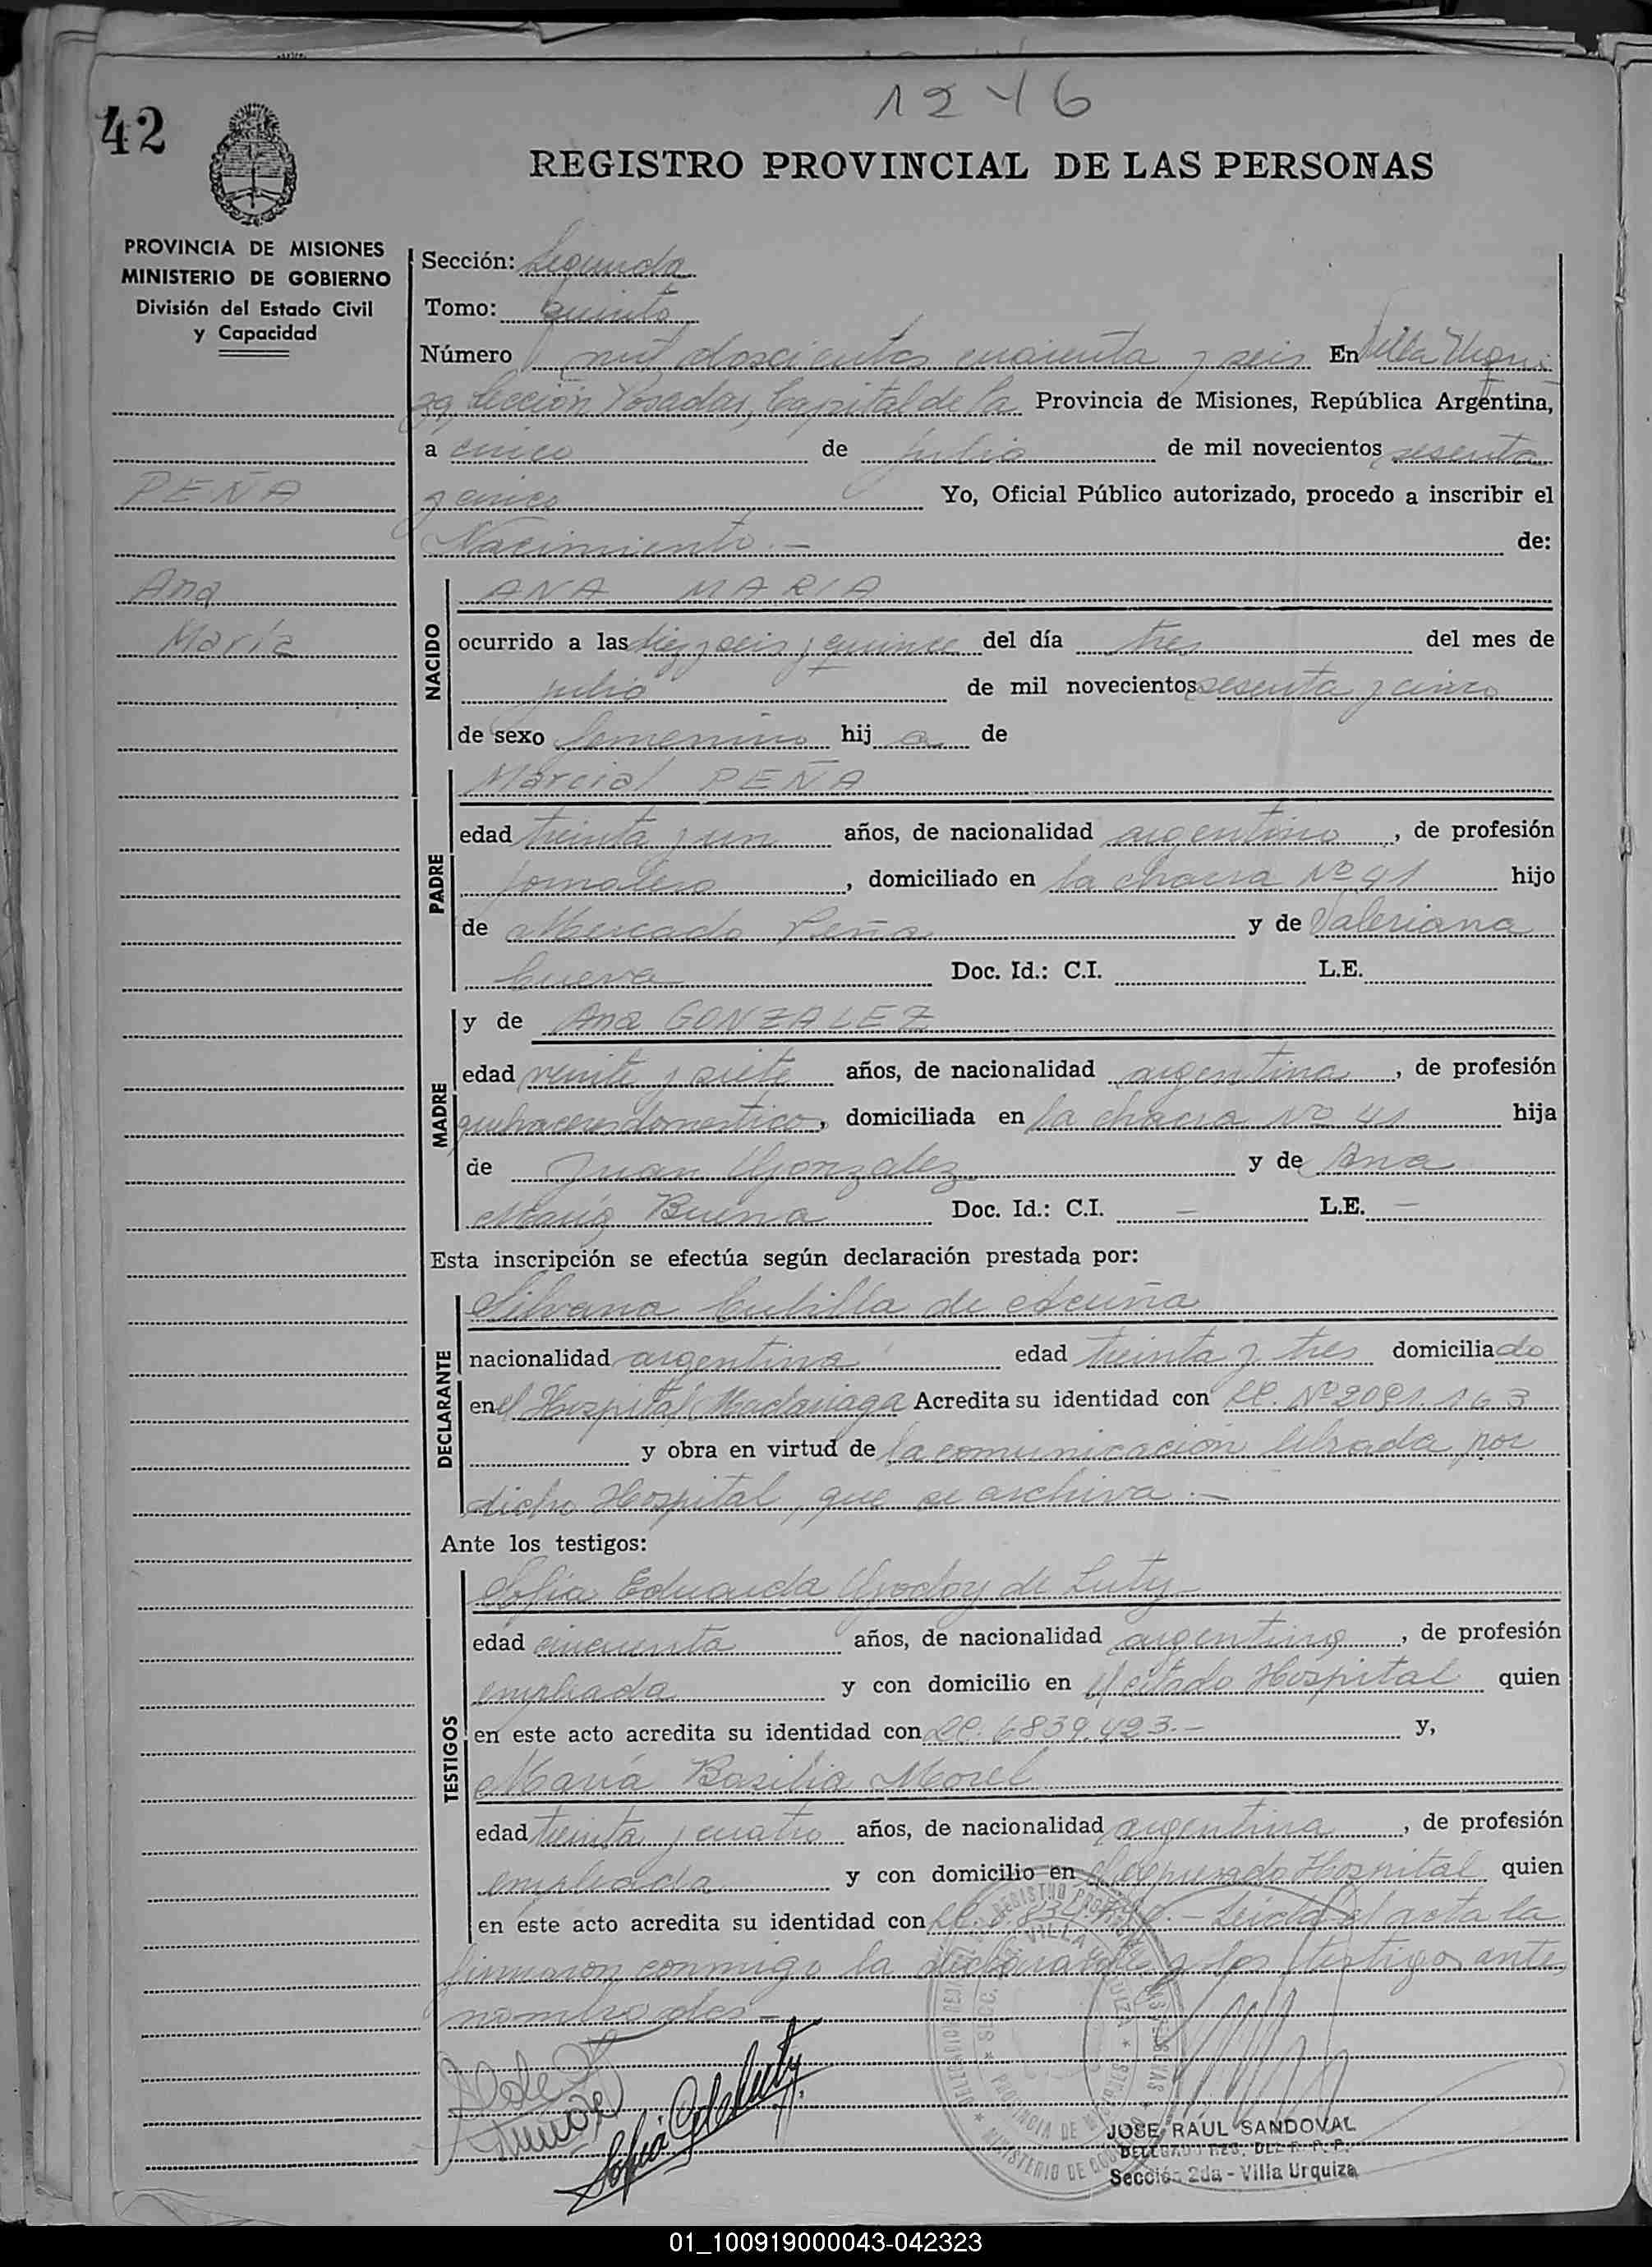 1246
42
REGISTRO PROVINCIAL DE LAS PERSONAS
PROVINCIA DE MISIONES
MINISTERIO DE GOBIERNO
División del Estado Civil
y Capacidad
PEÑA
Ana
María
Sección: Segunda
Tomo: quinto
Número mil doscientos cuarenta y seis En Villa Urqui
za, Sección Posadas, Capital de la Provincia de Misiones, República Argentina,
a cinco de julio de mil novecientos sesenta
y cinco Yo, Oficial Público autorizado, procedo a inscribir el
Nacimiento.- de:
NACIDO
ANA MARIA
ocurrido a las diez y seis y quince del día tres del mes de
julio de mil novecientos sesenta y cinco
de sexo femenino hij a de
PADRE
Marcial PEÑA
edad treinta y un años, de nacionalidad argentino, de profesión
jornalero, domiciliado en la chacra Nº 41 hijo
de Mercado Peña y de Valeriana
Cueva Doc. Id.: C.I. L.E.
MADRE
y de Ana GONZALEZ
edad veinte y siete años, de nacionalidad argentina, de profesión
quehaceres domestico, domiciliada en la chacra Nº 41 hija
de Juan Gonzalez y de Ana
María Buena Doc. Id.: C.I. - L.E. -
Esta inscripción se efectúa según declaración prestada por:
DECLARANTE
Silvana Cubilla de Acuña
nacionalidad argentina edad treinta y tres domiciliado
en el Hospital Madariaga Acredita su identidad con LC. Nº 2091.163
y obra en virtud de la comunicación librada por
dicho Hospital, que se archiva.-
Ante los testigos:
TESTIGOS
Sofía Eduarda Godoy de Luty
edad cincuenta años, de nacionalidad argentina, de profesión
empleada y con domicilio en el citado Hospital quien
en este acto acredita su identidad con LC. 6839.423.- y,
María Basilia Morel
edad treinta y cuatro años, de nacionalidad argentina, de profesión
empleada y con domicilio en el expresado Hospital quien
en este acto acredita su identidad con LC. - Leída el acta la
firmaron conmigo la declarante y los testigos ante
nombrados.-
Sofía G de Luty
REGISTRO PROVINCIAL DE LAS PERSONAS
SECC. VILLA URQUIZA
PROVINCIA DE MISIONES
MINISTERIO DE GOBIERNO
JOSE RAUL SANDOVAL
Sección 2da - Villa Urquiza
01_100919000043-042323